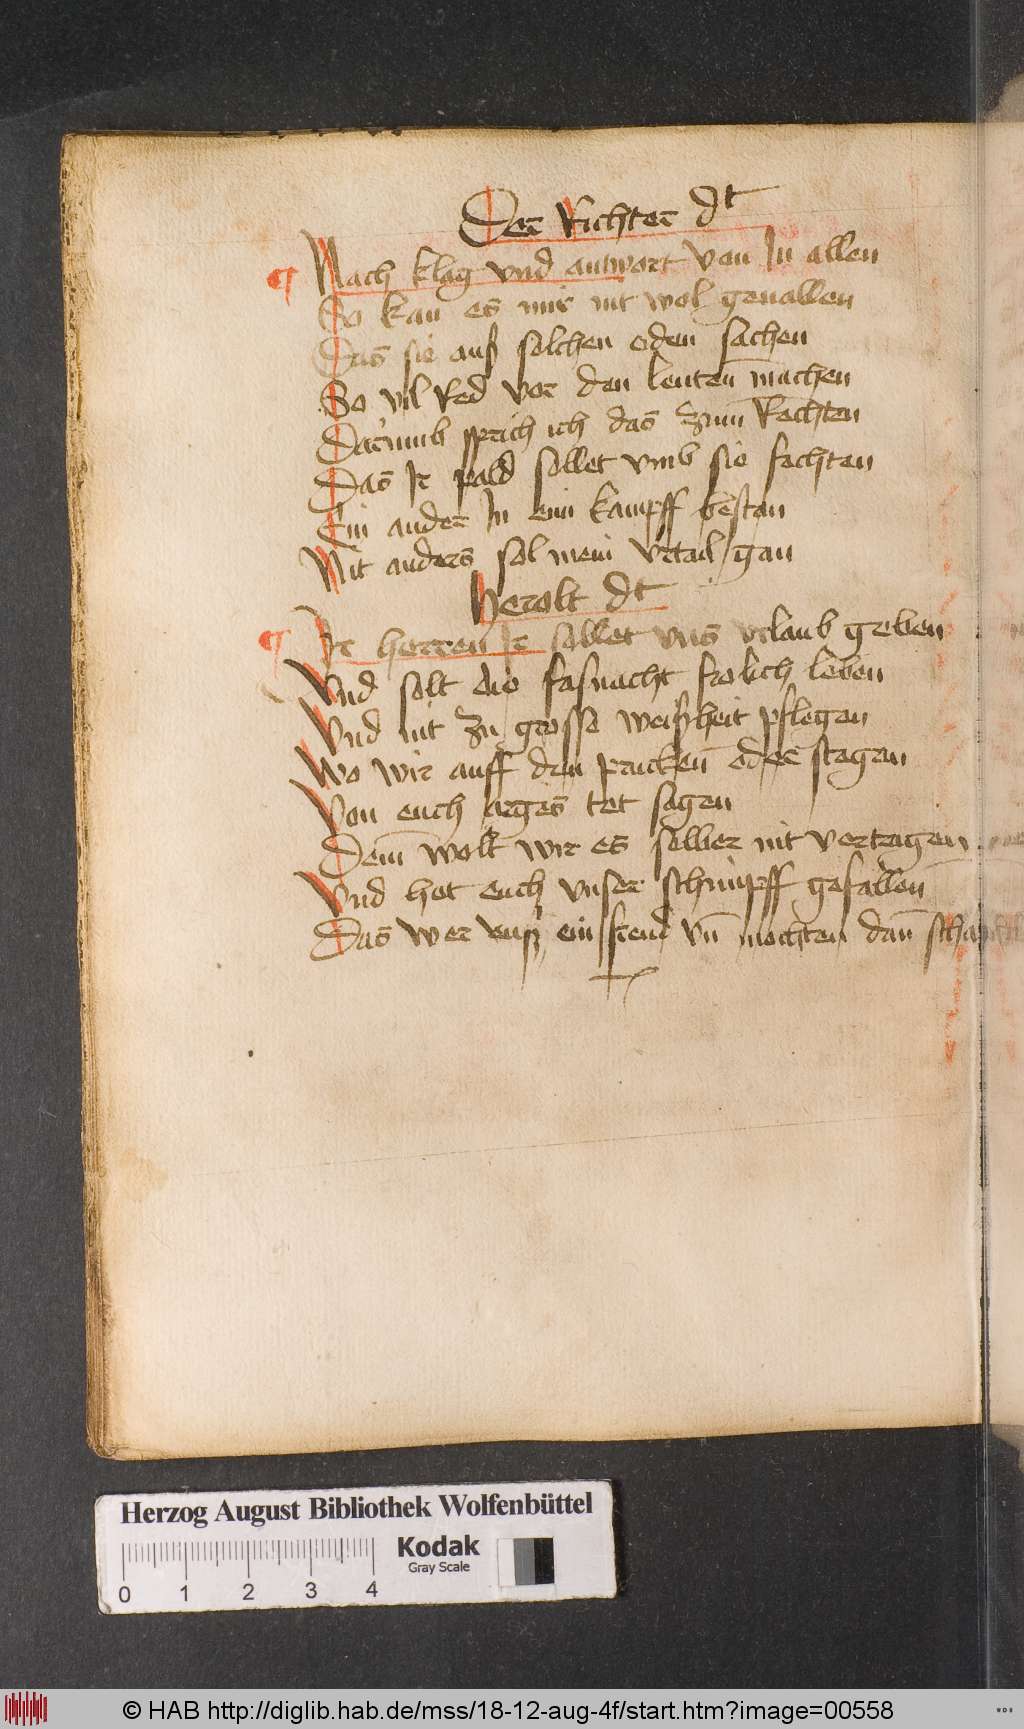 Der Richter dt
¶ Nach klag vnd antwort von In allen
So kan es mir nit wol geuallen
Das sie auß solchen oden sachen
So vil Red vor den leuten machen
Darumb sprich ich das zum Rechten
Das Ir pald sollet vmb sie fechten
Ein ander In eim kampff bestan
Nit anders sol mein vrtail gan
Herolt dt
¶ Ir herren Ir sollet vns vrlaub geben
Vnd solt die fasnacht frolich leben
Vnd nit zu grosse weißheit pflegen
Wo wir auff den prucken oder stegen
Von euch arges tet sagen
Dem wolt wir es selber nit vertragen
Vnd het euch vnser schimpff gefallen
Das wer ein frend vn mochten dan
Herzog August Bibliothek Wolfenbüttel
Kodak
Gray Scale
0 1 2 3 4
© HAB http://diglib.hab.de/mss/18-12-aug-4f/start.htm?image=00558